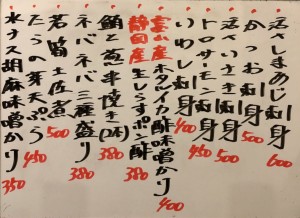 活さしまあじ刺身 600
かつお刺身 500
活いさき刺身 500
トロサーモン刺身 500
いわし刺身 400
富山産ホタルイカ酢味噌かけ 400
静岡産生しらすポン酢 380
鮪と葱串焼き(2本) 380
ネバネバ三種盛り 380
若筍土佐煮 500
たらの芽天ぷら 450
水ナス胡麻味噌かけ 350